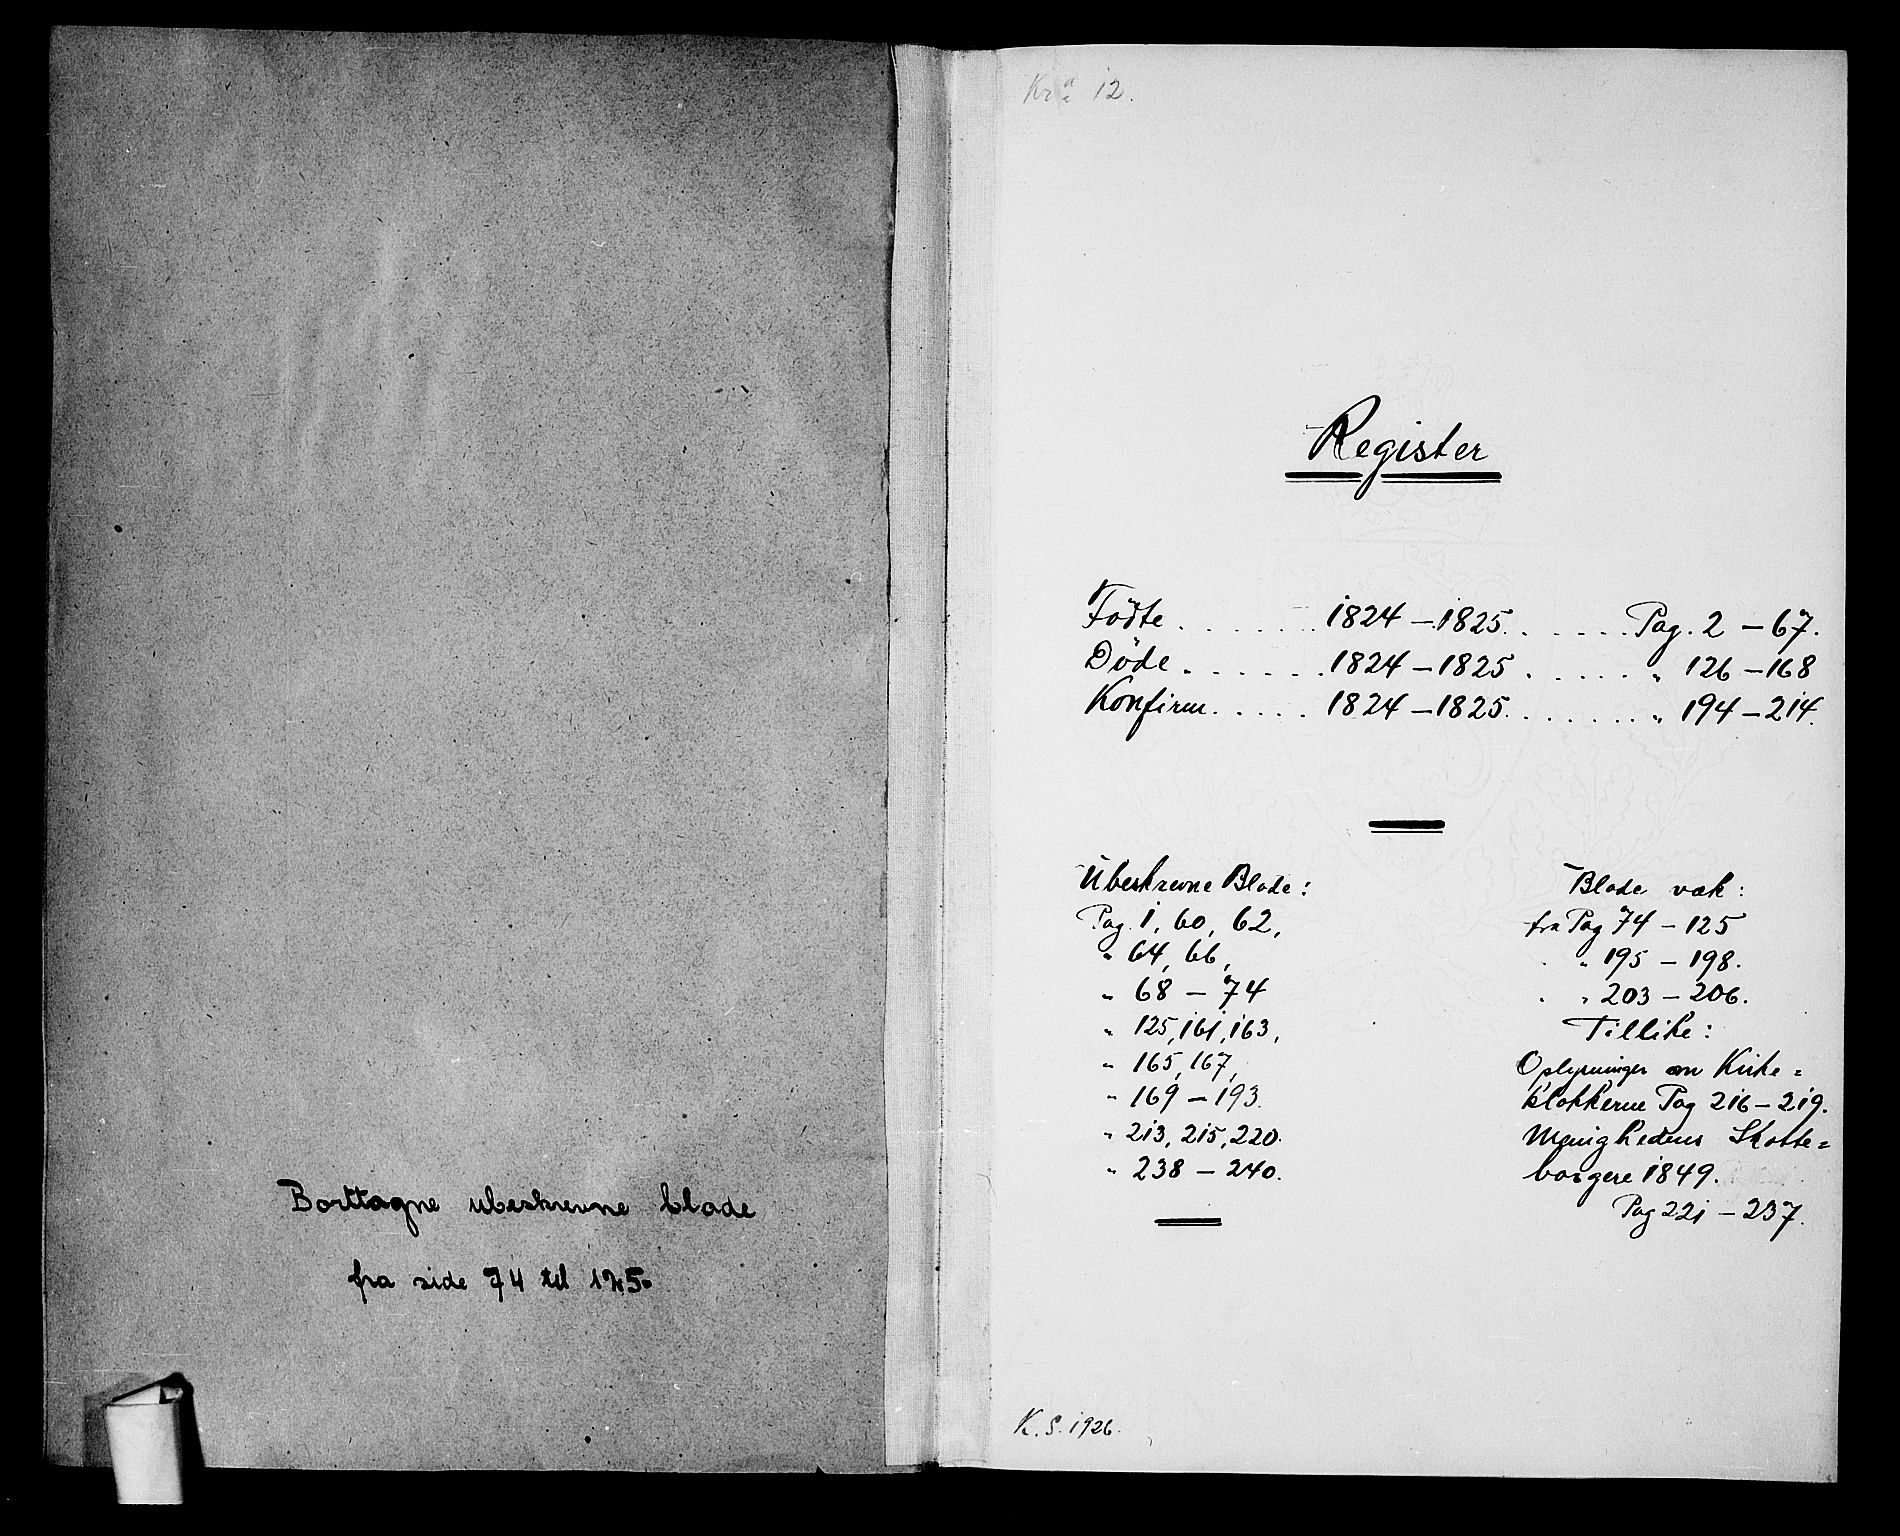 Borttagne ubeskrevne blade
fra side 74 til 125.
12.
Register
Födte . . . . . . . 1824 – 1825 . . . . . . Pag. 2 – 67.
Döde . . . . . . . 1824 – 1825 . . . . . . " 126 – 168
Konfirm. . . . . . 1824 – 1825 . . . . . . . " 194 – 214.
Ubeskrevne Blade:
Pag. 1, 60, 62,
" 64, 66,
" 68 – 74
" 125, 161, 163,
" 165, 167,
" 169 – 193.
" 213, 215, 220.
" 238 – 240.
Blade væk:
fra Pag 74 – 125
" " 195 – 198.
" " 203 – 206.
Tillike:
Oplysninger om Kirke=
klokkerne Pag 216 – 219.
Menighedens Skatte=
borgere 1849.
Pag 221 – 237.
K. S. 1926.